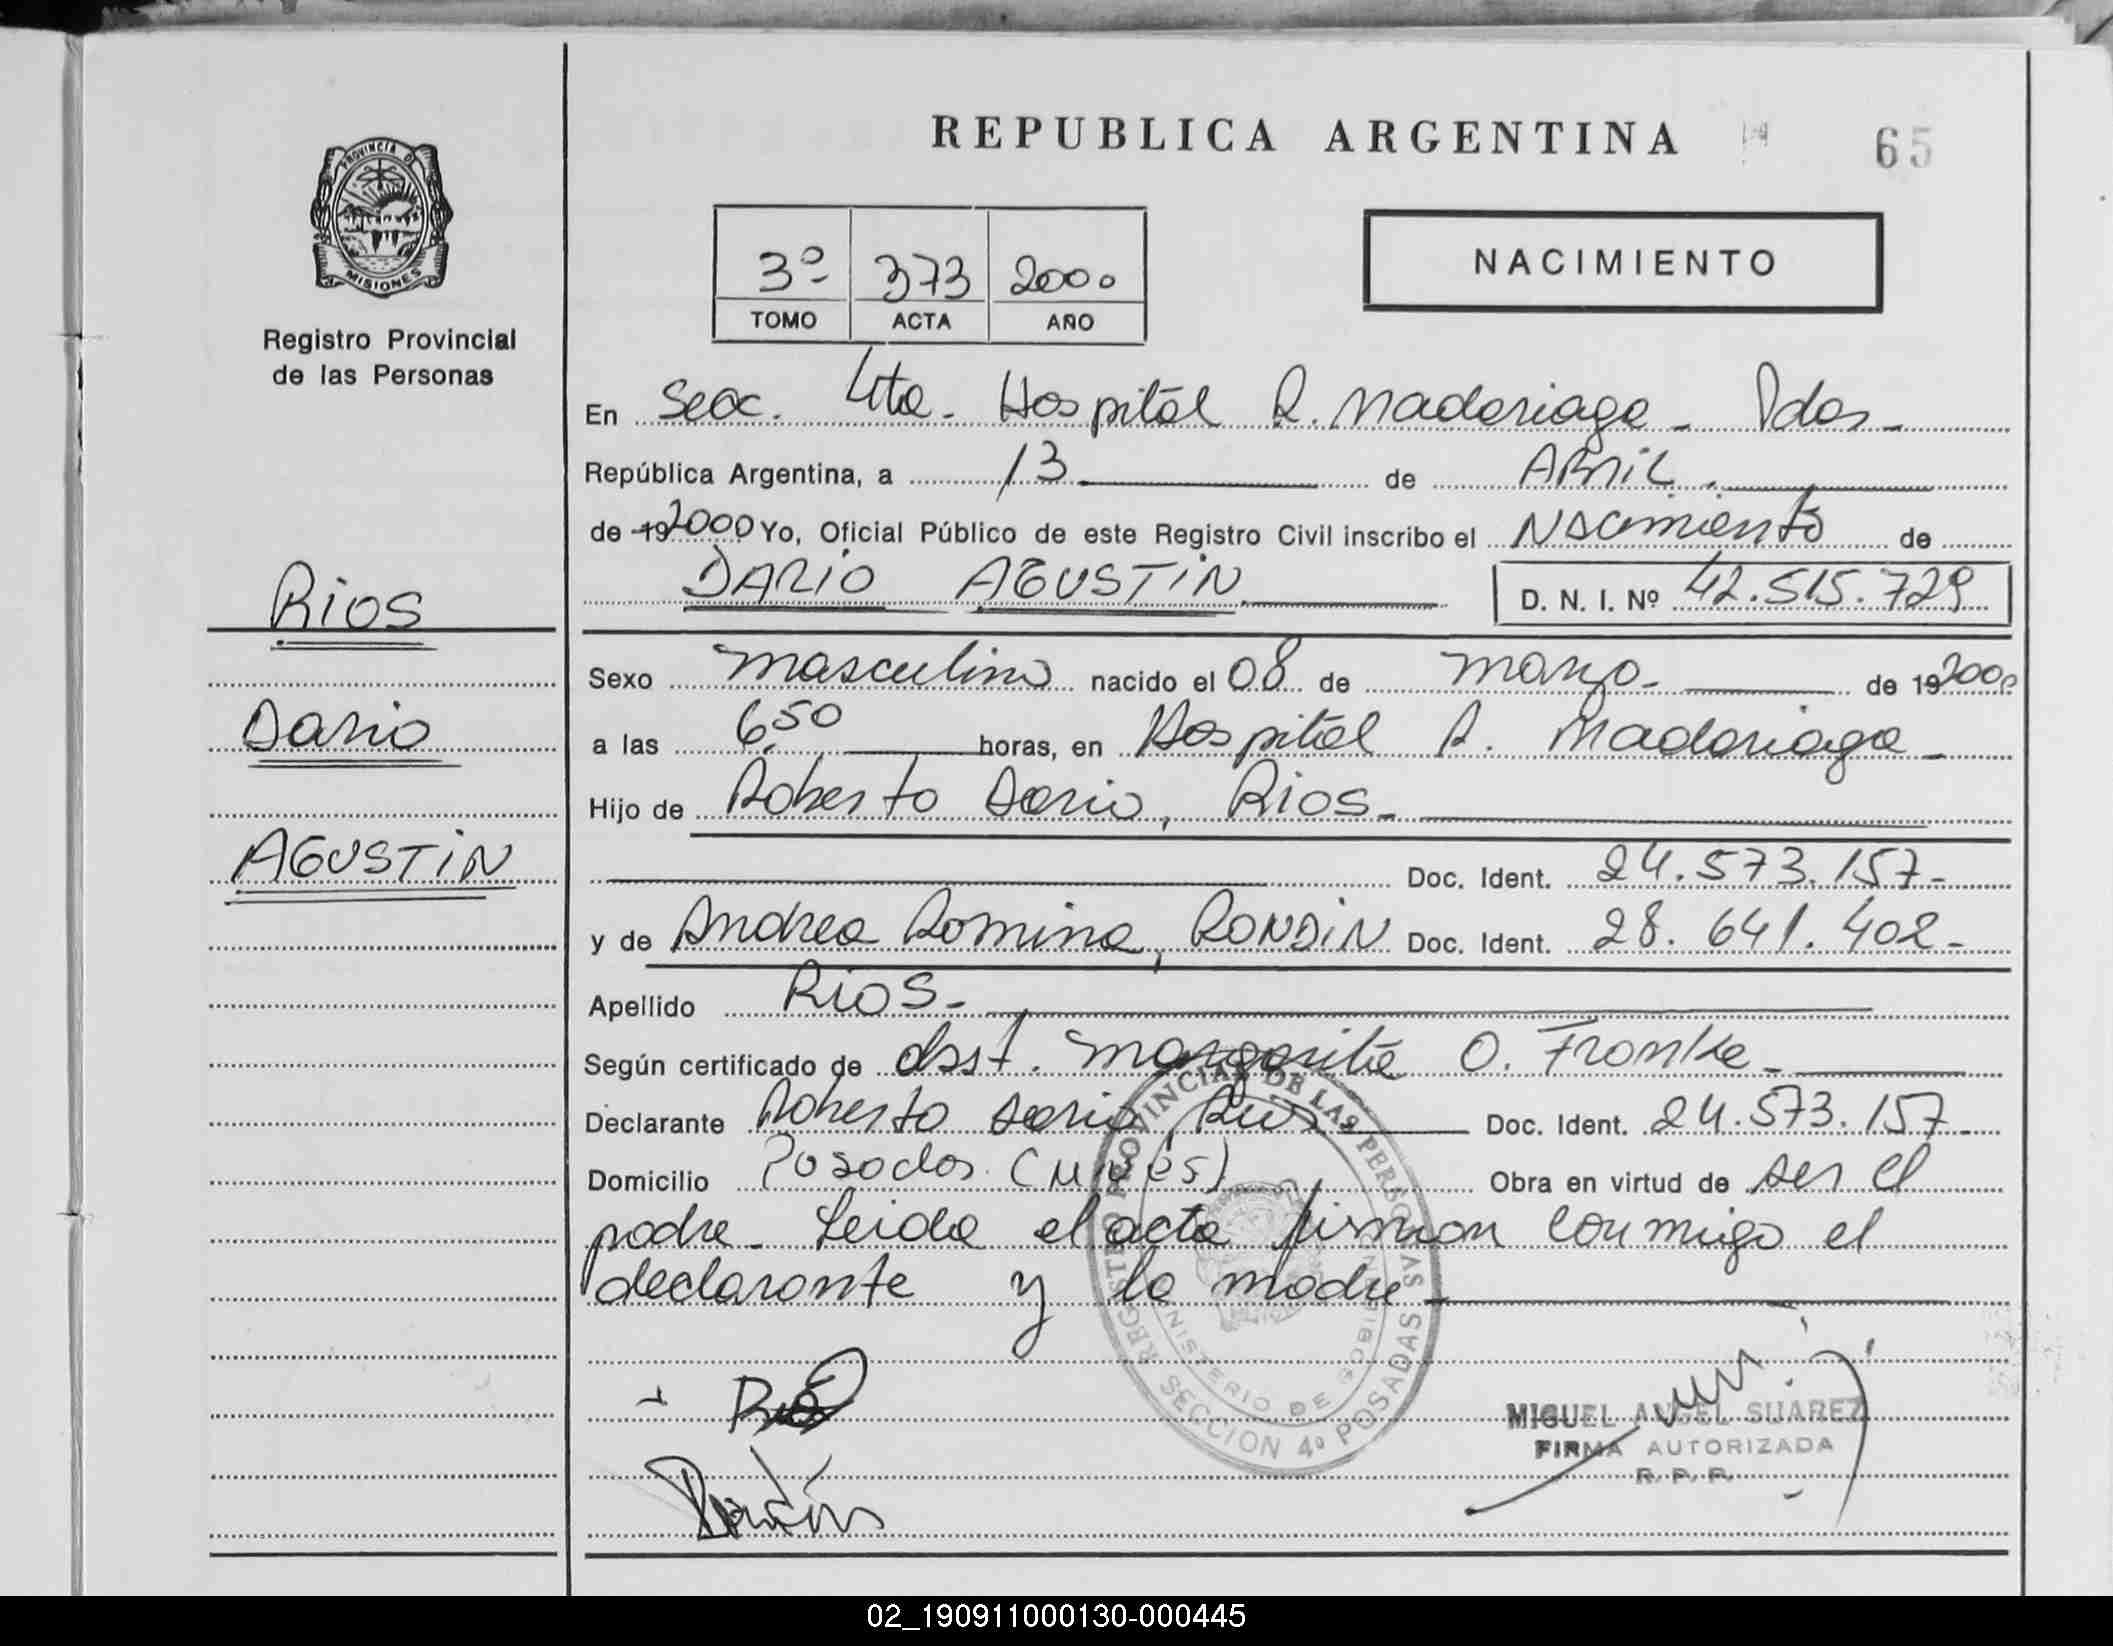 REPUBLICA ARGENTINA
65
PROVINCIA DE
MISIONES
Registro Provincial
de las Personas
3º 373 2000
TOMO ACTA AÑO
NACIMIENTO
En Secc. 4ta. Hospital R. Madariaga - Pdas -
República Argentina, a 13 de ABRIL.
de 19 2000 Yo, Oficial Público de este Registro Civil inscribo el Nacimiento de
DARIO AGUSTIN D. N. I. Nº 42.515.729
Rios
Dario
AGUSTIN
Sexo masculino nacido el 08 de marzo - de 19 2000
a las 6,50 horas, en Hospital R. Madariaga -
Hijo de Roberto Dario, Rios -
Doc. Ident. 24.573.157 -
y de Andrea Romina, RONDIN Doc. Ident. 28.641.402 -
Apellido Rios -
Según certificado de Margarita O. Fromke -
Declarante Roberto Dario, Rios - Doc. Ident. 24.573.157 -
Domicilio Posadas (Mnes) Obra en virtud de ser el
padre - Leida el acta firman conmigo el
declarante y la madre -
REGISTRO PROVINCIAL DE LAS PERSONAS
MINISTERIO DE GOBIERNO
SECCION 4º POSADAS
MIGUEL ANGEL SUAREZ
FIRMA AUTORIZADA
R. P. P.
02_190911000130-000445